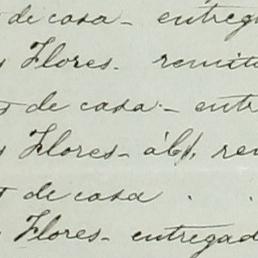 de casa - entreg
Flores - remit
de casa - entr
Flores - áb/. rem
de casa . .
Flores - entregad